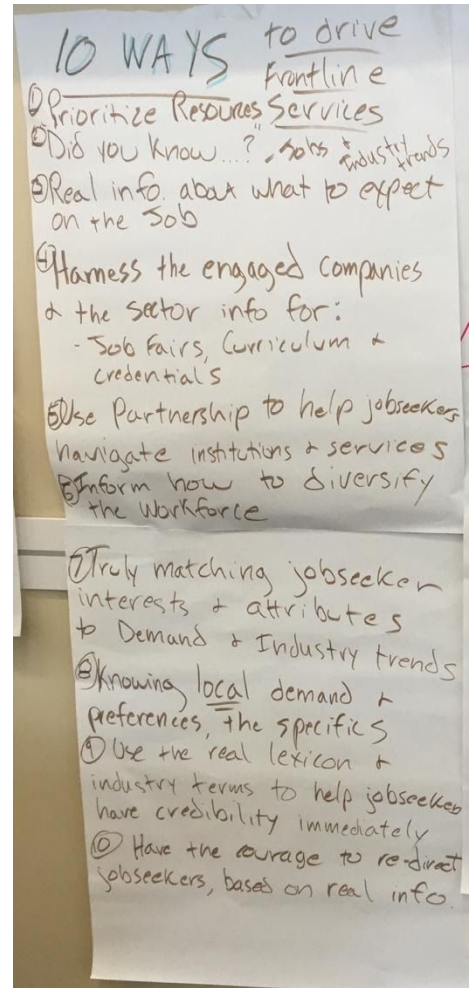 10 WAYS to drive
Frontline
① Prioritize Resources Services
② "Did you know...?", Jobs + industry trends
③ Real info. about what to expect
on the Job
④ Harness the engaged companies
& the sector info for:
- Job Fairs, Curriculum &
credentials
⑤ Use Partnership to help jobseekers
navigate institutions & services
⑥ Inform how to diversify
the workforce
⑦ Truly matching jobseeker
interests & attributes
to Demand & Industry trends
⑧ Knowing local demand &
preferences, the specifics
⑨ Use the real lexicon &
industry terms to help jobseeker
have credibility immediately
⑩ Have the courage to re-direct
jobseekers, based on real info.